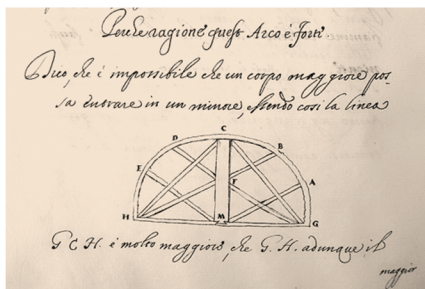 Perche ragione quest Arco è forti
Dico, che è impossibile che un corpo maggiore pos-
sa entrare in un minore, essendo cosi la linea
C
D B
E A
F
H M G
G C H. è molto maggiore, che G. H. adunque il
maggior